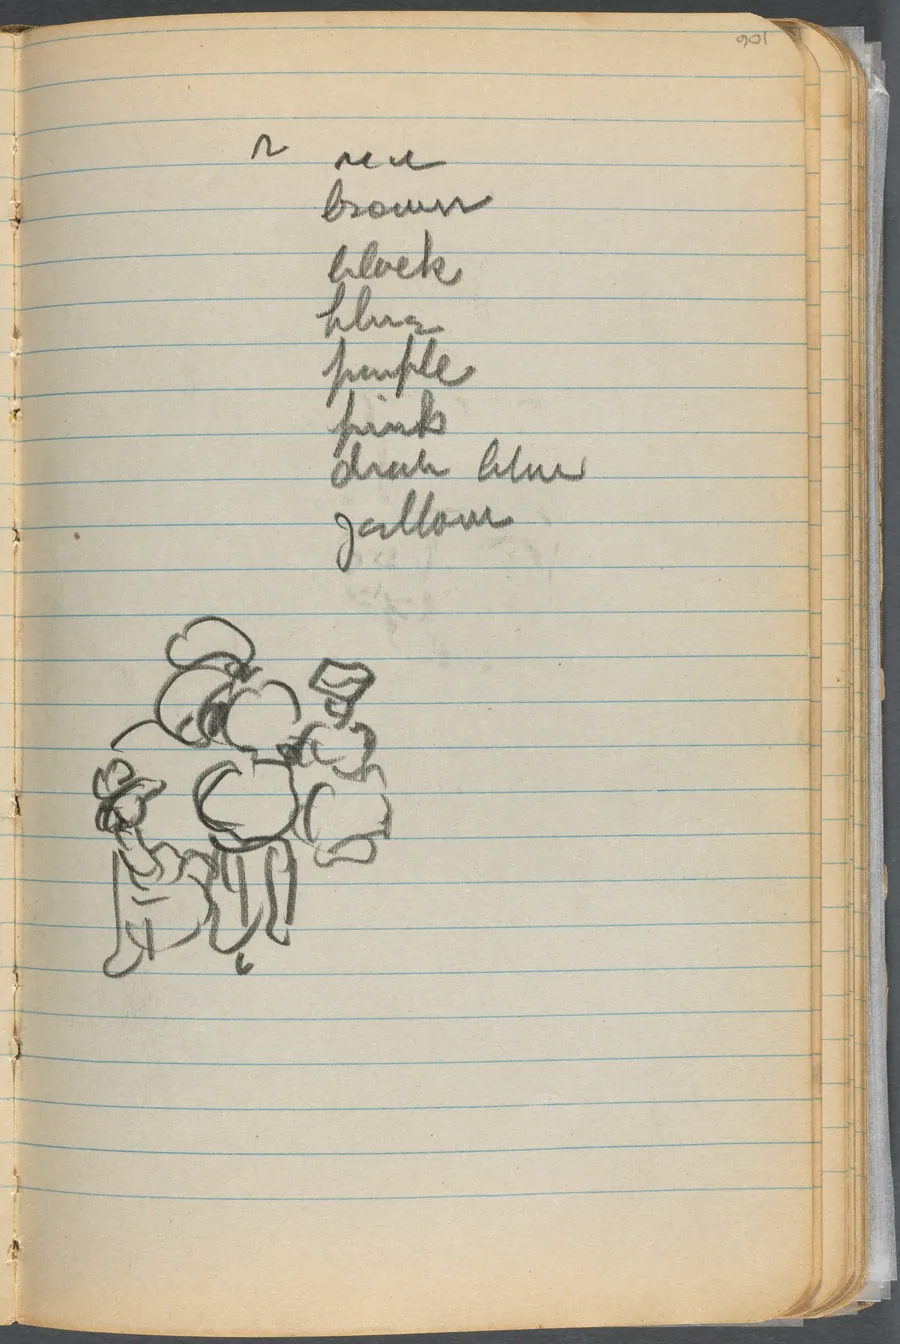 106
r red
brown
black
blue
purple
pink
drak blue
jallow